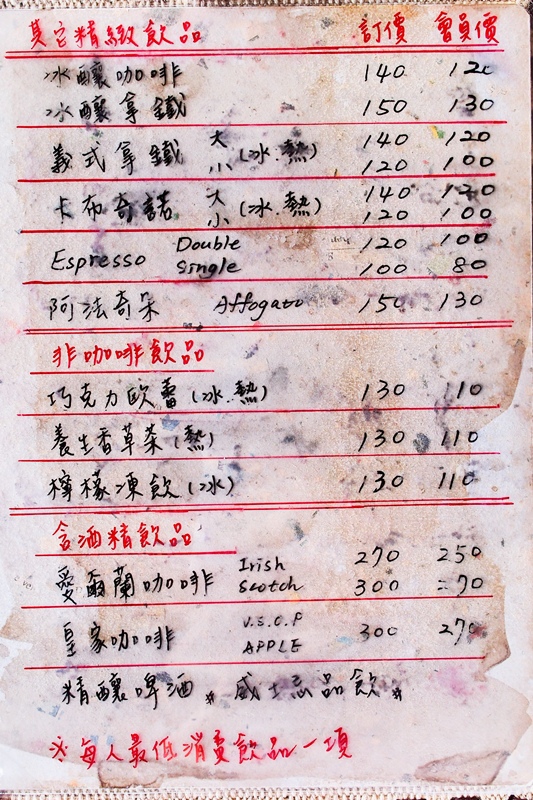 其它精緻飲品 訂價 會員價
冰釀咖啡 140 120
冰釀拿鐵 150 130
義式拿鐵 大 (冰.熱) 140 120
小 120 100
卡布奇諾 大 (冰.熱) 140 120
小 120 100
Espresso Double 120 100
Single 100 80
阿法奇朵 Affogato 150 130
非咖啡飲品
巧克力歐蕾(冰.熱) 130 110
養生香草茶(熱) 130 110
檸檬凍飲(冰) 130 110
含酒精飲品
愛爾蘭咖啡 Irish 270 250
Scotch 300 270
皇家咖啡 V.S.O.P 300 270
APPLE
精釀啤酒 * 威士忌品飲 *
※每人最低消費飲品一項